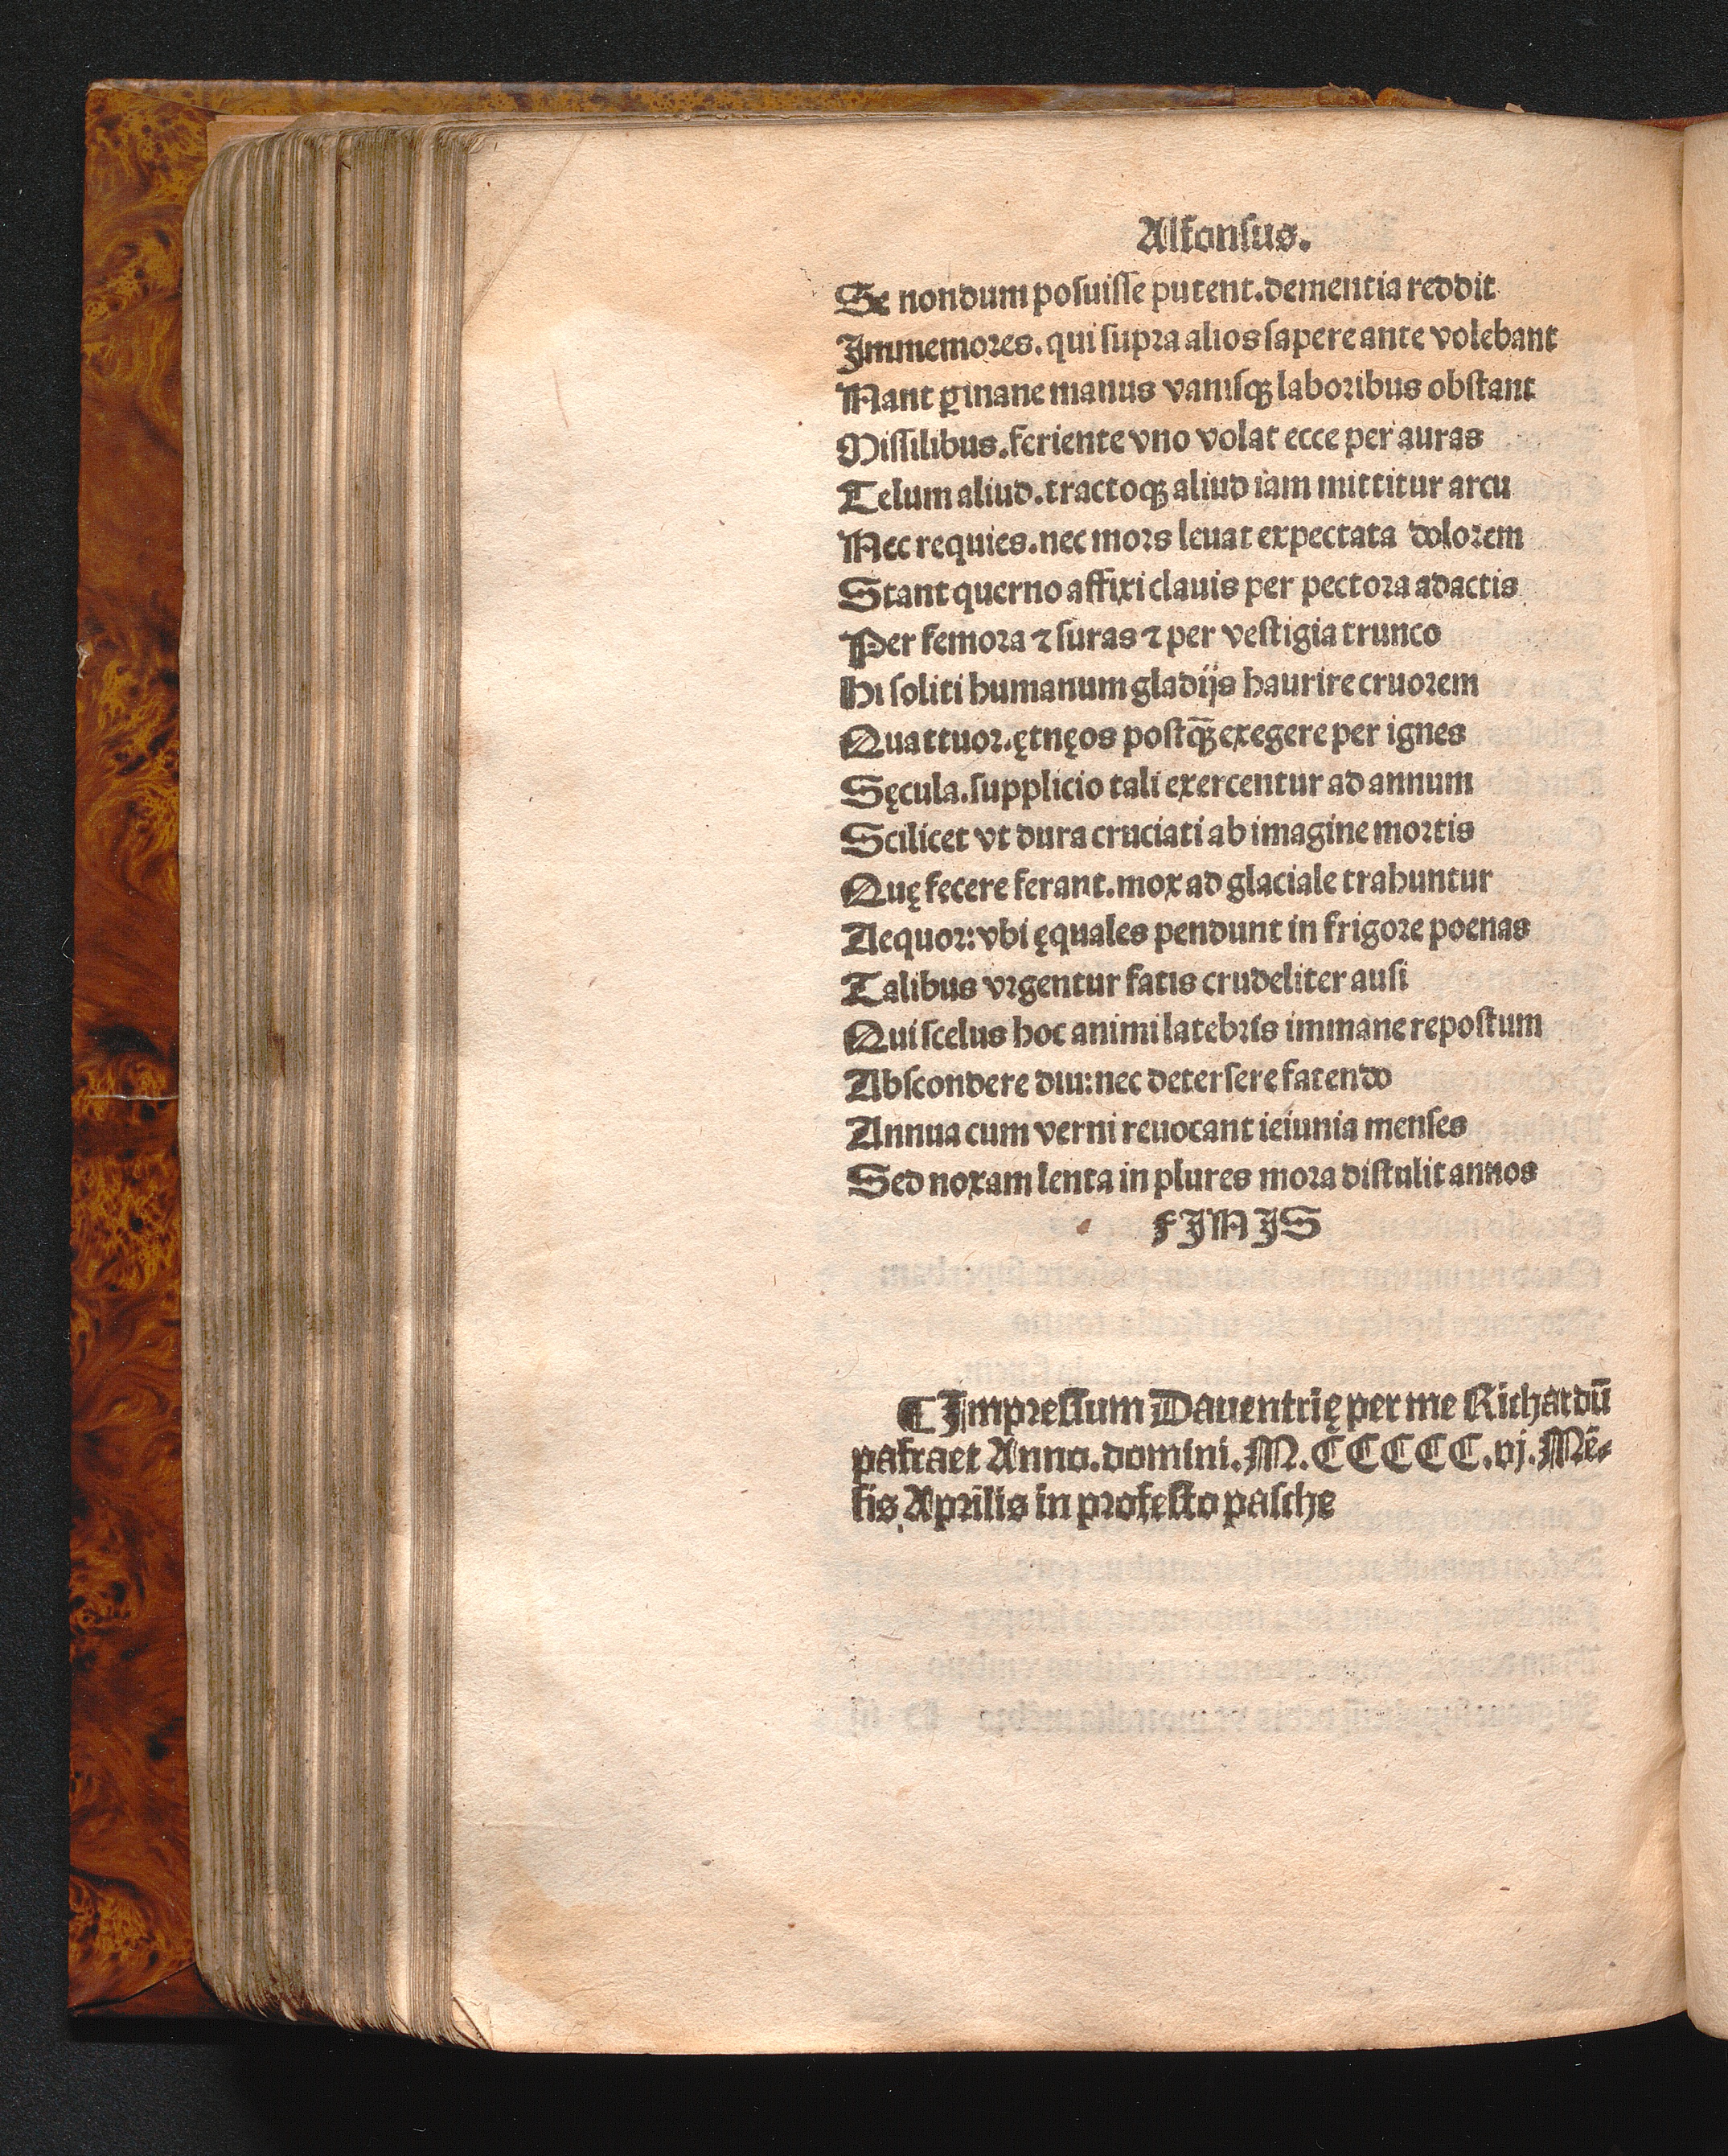 Alfonſus.
Se nondum poſuiſſe putent.dementia reddit
Immemores.qui ſupra alios ſapere ante volebant
Nant ꝑ inane manus vaniſqꝫ laboribus obſtant
Miſſilibus.feriente vno volat ecce per auras
Telum aliud.tractoqꝫ aliud iam mittitur arcu
Nec requies.nec mors leuat expectata dolorem
Stant querno affixi clauis per pectora adactis
Per femora ⁊ ſuras ⁊ per veſtigia trunco
Hi ſoliti humanum gladijs haurire cruorem
Quattuor.ętnęos poſtq̄ꝫ exegere per ignes
Sęcula.ſupplicio tali exercentur ad annum
Scilicet vt dura cruciati ab imagine mortis
Quę fecere ferant.mox ad glaciale trahuntur
Aequor:vbi ęquales pendunt in frigore poenas
Talibus vrgentur fatis crudeliter auſi
Qui ſcelus hoc animi latebris immane repoſtum
Abſcondere diu:nec deterſere fatendo
Annua cum verni reuocant ieiunia menſes
Sed noxam lenta in plures mora diſtulit annos
FINIS
⸿Impreſſum Dauentrię per me Richardū
pafraet Anno.domini.M.CCCCC.vj.Mē⸗
ſis Aprilis in profeſto paſche